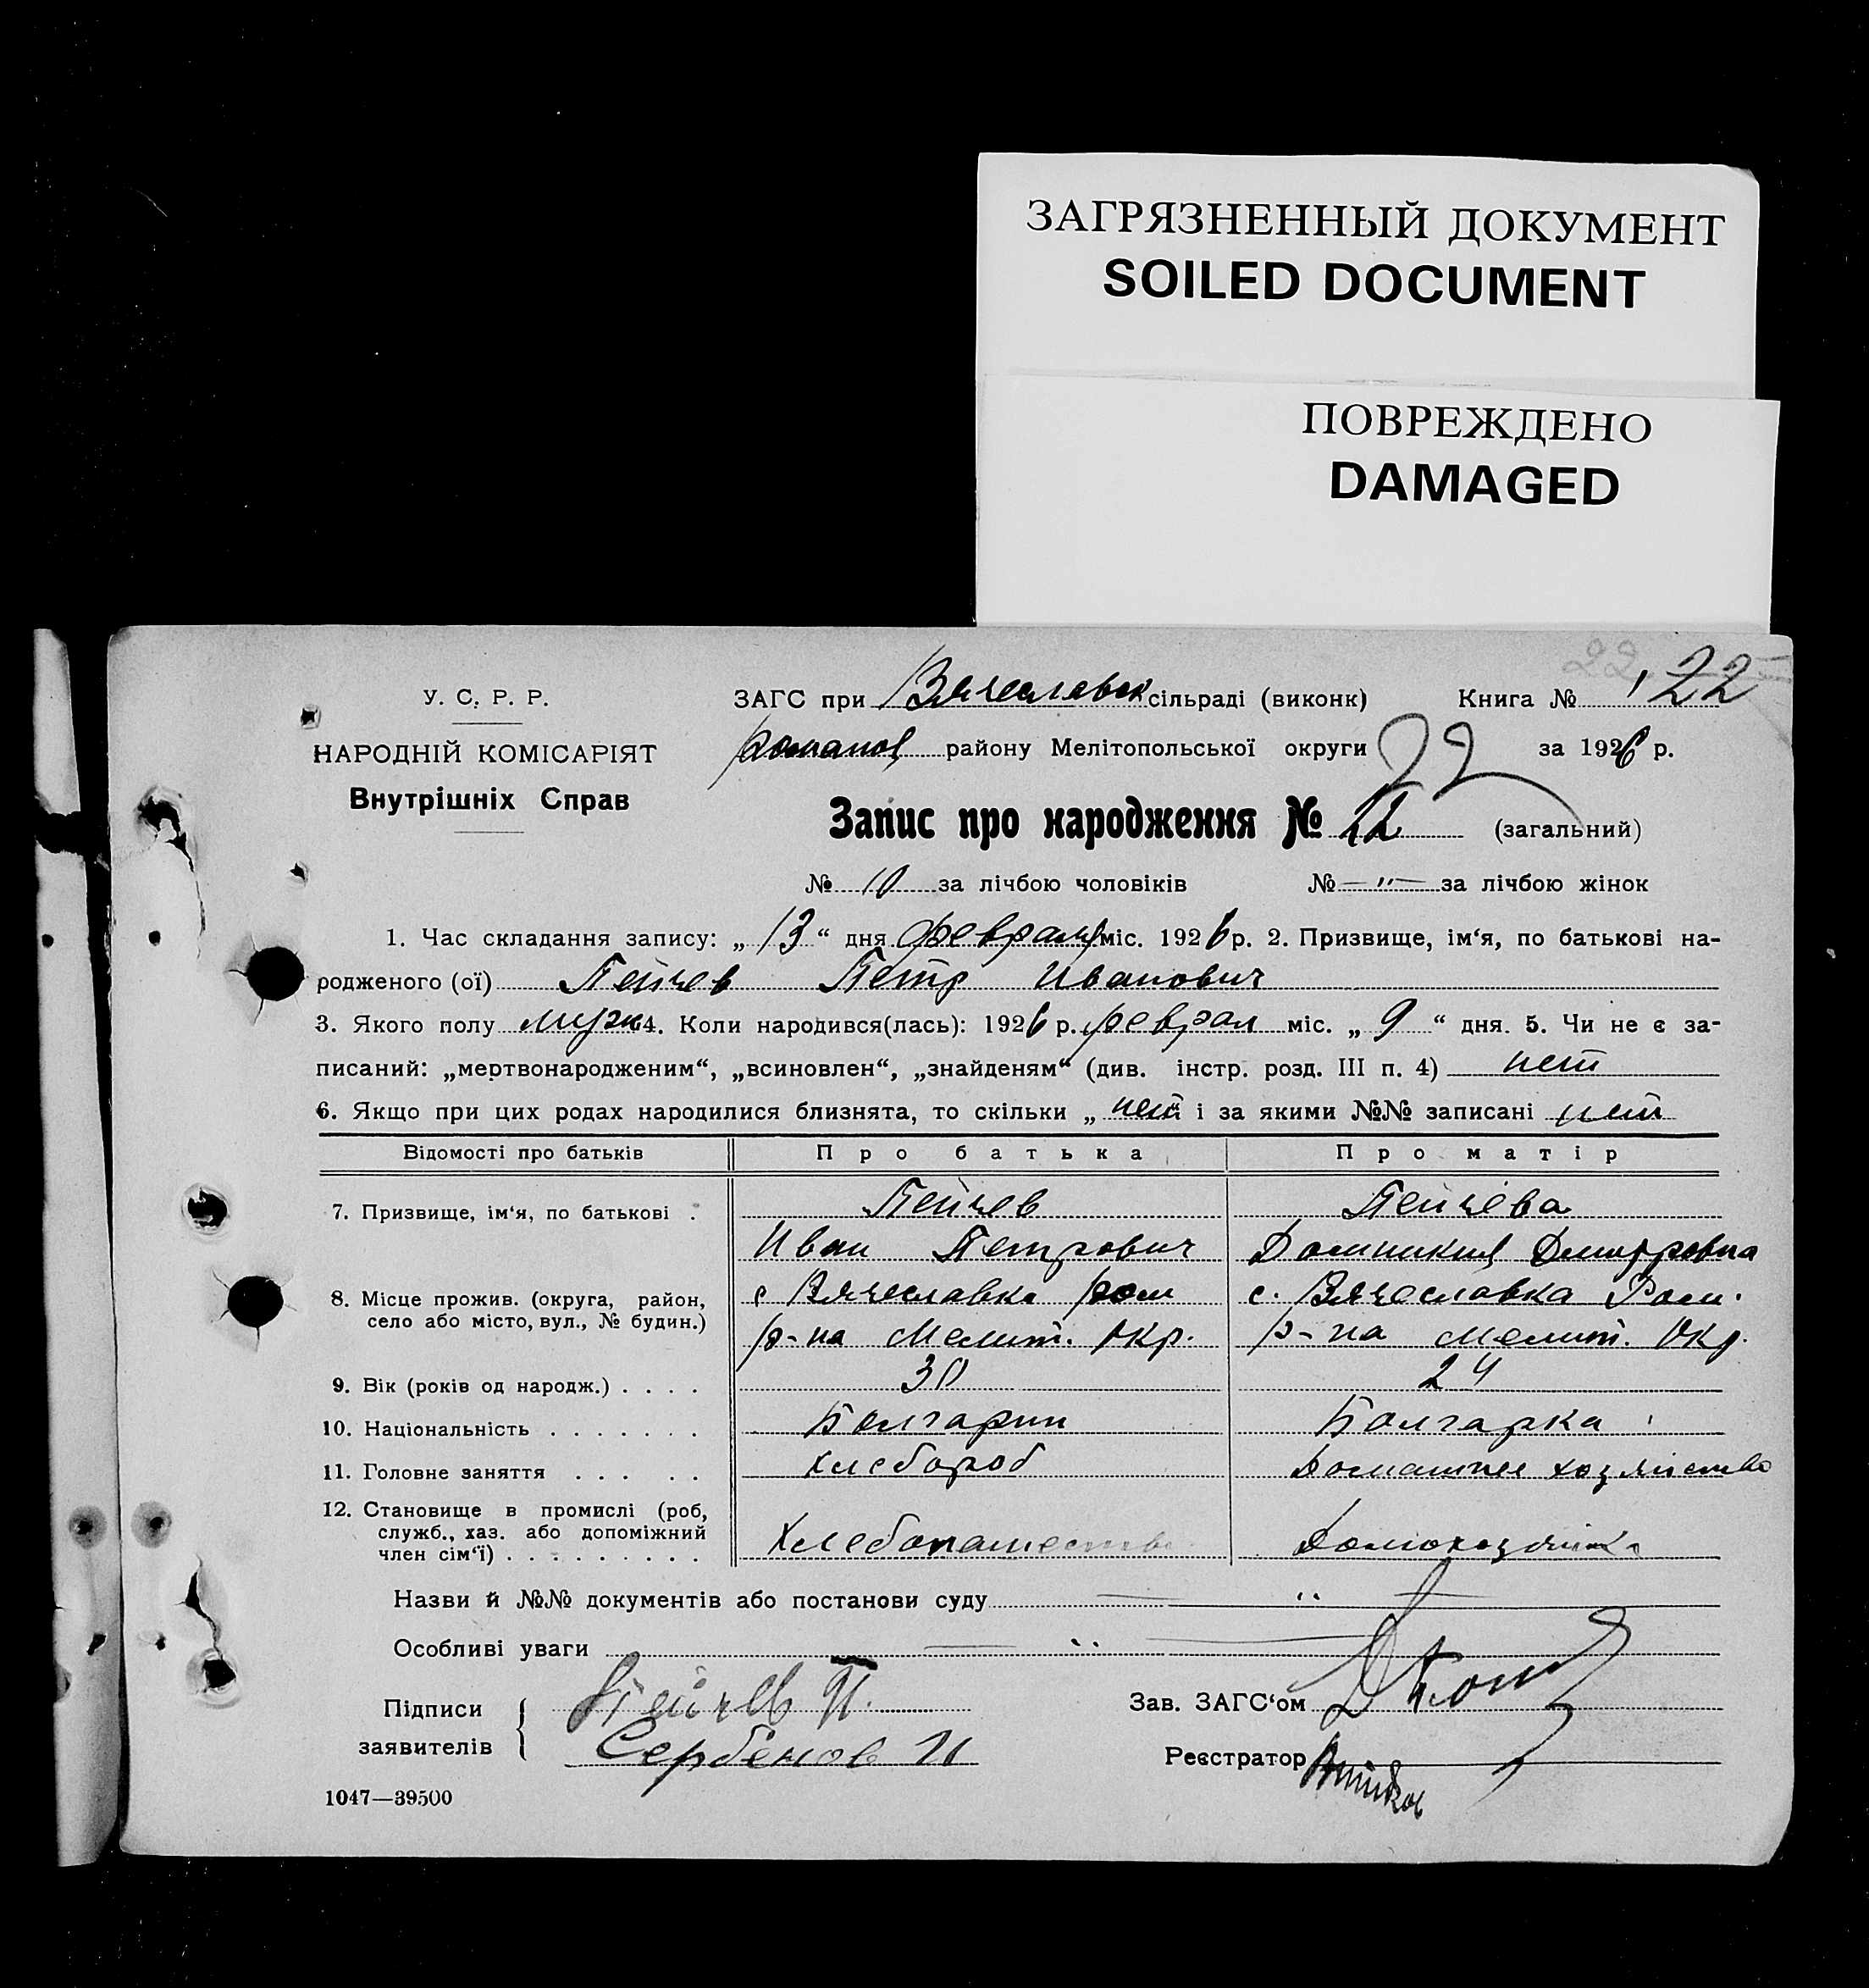 ЗАГРЯЗНЕННЫЙ ДОКУМЕНТ
SOILED DOCUMENT
ПОВРЕЖДЕНО
DAMAGED
22
У. С. Р. Р.
НАРОДНІЙ КОМІСАРІЯТ
Внутрішніх Справ
ЗАГС при Вячеславск сільраді (виконк) Книга № 22
Романов району Мелітопольської округи 22 за 1926 р.
Запис про народження № 22 (загальний)
№ 10 за лічбою чоловіків № —"— за лічбою жінок
1. Час складання запису: „ 13 “ дня февраля міс. 1926 р. 2. Призвище, ім‘я, по батькові на-
родженого (ої) Пейчев Петр Иванович
3. Якого полу муж 4. Коли народився(лась): 1926 р. феврал міс. „ 9 “ дня. 5. Чи не є за-
писаний: „мертвонародженим“, „всиновлен“, „знайденям“ (див. інстр. розд. III п. 4) нет
6. Якщо при цих родах народилися близнята, то скільки „ нет і за якими №№ записані нет
Відомості про батьків Про батька Про матір
7. Призвище, ім‘я, по батькові . Пейчев Пейчева
Иван Петрович Домникия Дмитровна
8. Місце прожив. (округа, район, с Вячеславка Ром с. Вячеславка Ром.
село або місто, вул., № будин.) р-на Мелит. Окр. р-на Мелит. Окр.
9. Вік (років од народж.) . . . . 30 24
10. Національність . . . . . . . Болгарин Болгарка
11. Головне заняття . . . . . Хлебороб Домашнее хозяйство
12. Становище в промислі (роб,
служб., хаз. або допоміжний Хлебопашество Домохозяйка
член сім‘ї) . . . . . . . . .
Назви й №№ документів або постанови суду — " —
Особливі уваги — " —
Підписи Пейчев П. Зав. ЗАГС‘ом
заявителів Сербенов И Реєстратор
1047—39500